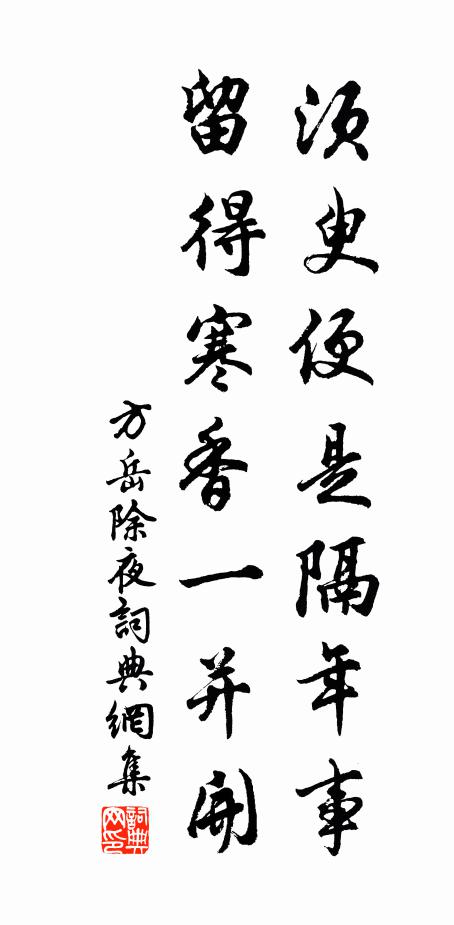 須臾便是隔年事
留得寒香一并開
方岳除夜詞典網集
詞典網印